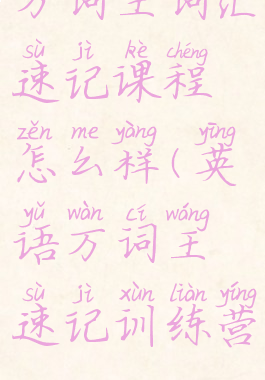 万词王词汇
sù jì kè chéng
速记课程
zěn me yàng yīng
怎么样(英
yǔ wàn cí wáng
语万词王
sù jì xùn liàn yíng
速记训练营